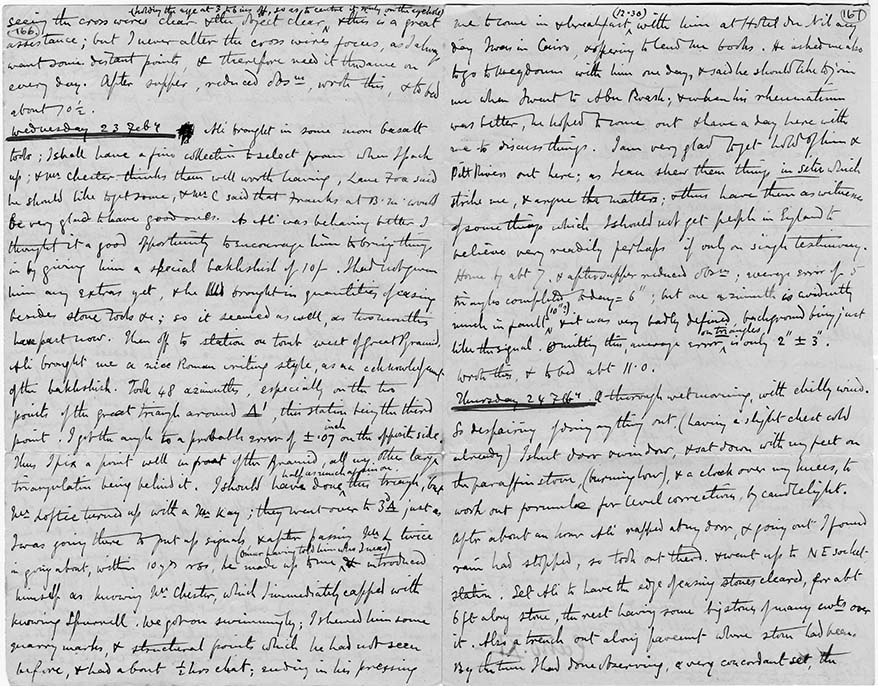 (holding the eye at 3 to 6 ins off, so as to centre it truly on the eyehole)
166
seeing the cross wires clear & the object clear, & this is a great
assistance; but I never alter the cross wires focus, as I always
want some distant points, & therefore need it the same on
every day. After supper, reduced obs^ns, wrote this, & to bed
about 10½.
Wednesday 23 Feb^y Ali brought in some more basalt
tools; I shall have a fine collection to select from when I pack
up; & Mr Chester thinks them well worth having, Lane Fox said
he should like to get some, & Mr C said that Franks at B.M. would
be very glad to have good ones. As Ali was behaving better I
thought it a good opportunity to encourage him to bring things
in by giving him a special bakhshish of 10/-. I had not given
him any extras yet, & he brought in quantities of casing
besides stone tools &c; so it seemed as well, as two months
have past now. Then off to station on tomb west of great Pyramid.
Ali brought me a nice Roman writing style, as an acknowledgement
of the bakhshish. Took 48 azimuths, especially on the two
points of the great triangle around Δ', this station being the third
point. I got the angle to a probable error of ± .07 inch on the opposite side.
Thus I fix a point well in front of the Pyramid, all my other large
triangulation being behind it. I should have done this triangle, but
Mr Loftie turned up with a Mr Kay; they went over to 3^d Δ just as
I was going there to put up signals, & after passing Mr L twice
in going about, within 10 yds or so, he made up to me & introduced
(Omar having told him who I was)
himself as knowing Mr Chester, which I immediately capped with
knowing Spurrell. We got on swimmingly; I shewed him some
quarry marks, & structural points which he had not seen
before, & had about ½ hrs chat; ending in his pressing
167
me to come in & breakfast (12.30) with him at Hotel du Nil any
day I was in Cairo, offering to lend me books. He asked me also
to go to Meydoum with him one day, & said he should like to join
me when I went to Abu Roash; & when his rheumatism
was better, he hoped to come out & have a day here with
me to discuss things. I am very glad to get hold of him &
Pitt Rivers out here; as I can shew them things in situ which
strike me, & argue the matters; & thus have them as witnesses
of some things which I should not get people in England to
believe very readily perhaps if only on single testimony.
Home by abt 7, & after supper reduced obs^ns; average error of 5
triangles completed today = 6"; but one azimuth is evidently
much in fault (10"?) & it was very badly defined, background being just
like the signal. Omitting this, average error on triangles, is only 2" ± 3".
Wrote this, & to bed abt 11.0.
Thursday 24 Feb^y A thorough wet morning, with chilly wind.
So despairing of doing anything out (having a slight chest cold
already) I shut door & window, & sat down with my feet on
the paraffin stove, (burning low), & a cloak over my knees, to
work out formulae for level corrections, by candlelight.
After about an hour Ali rapped at my door, & going out I found
rain had stopped, so took out theod. & went up to N E socket
station. Set Ali to have the edge of casing stones cleared, for abt
6 ft along stone, the rest having some big stones of many cwts over
it. Also a trench out along pavement where stone had been.
By the time I had done observing, a very concordant set, the